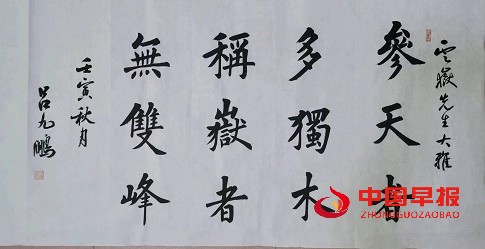 雲嶽先生大雅
參天者
多獨木
稱嶽者
無雙峰
壬寅秋月
呂九鵬
中国早报
ZHONGGUOZAOBAO